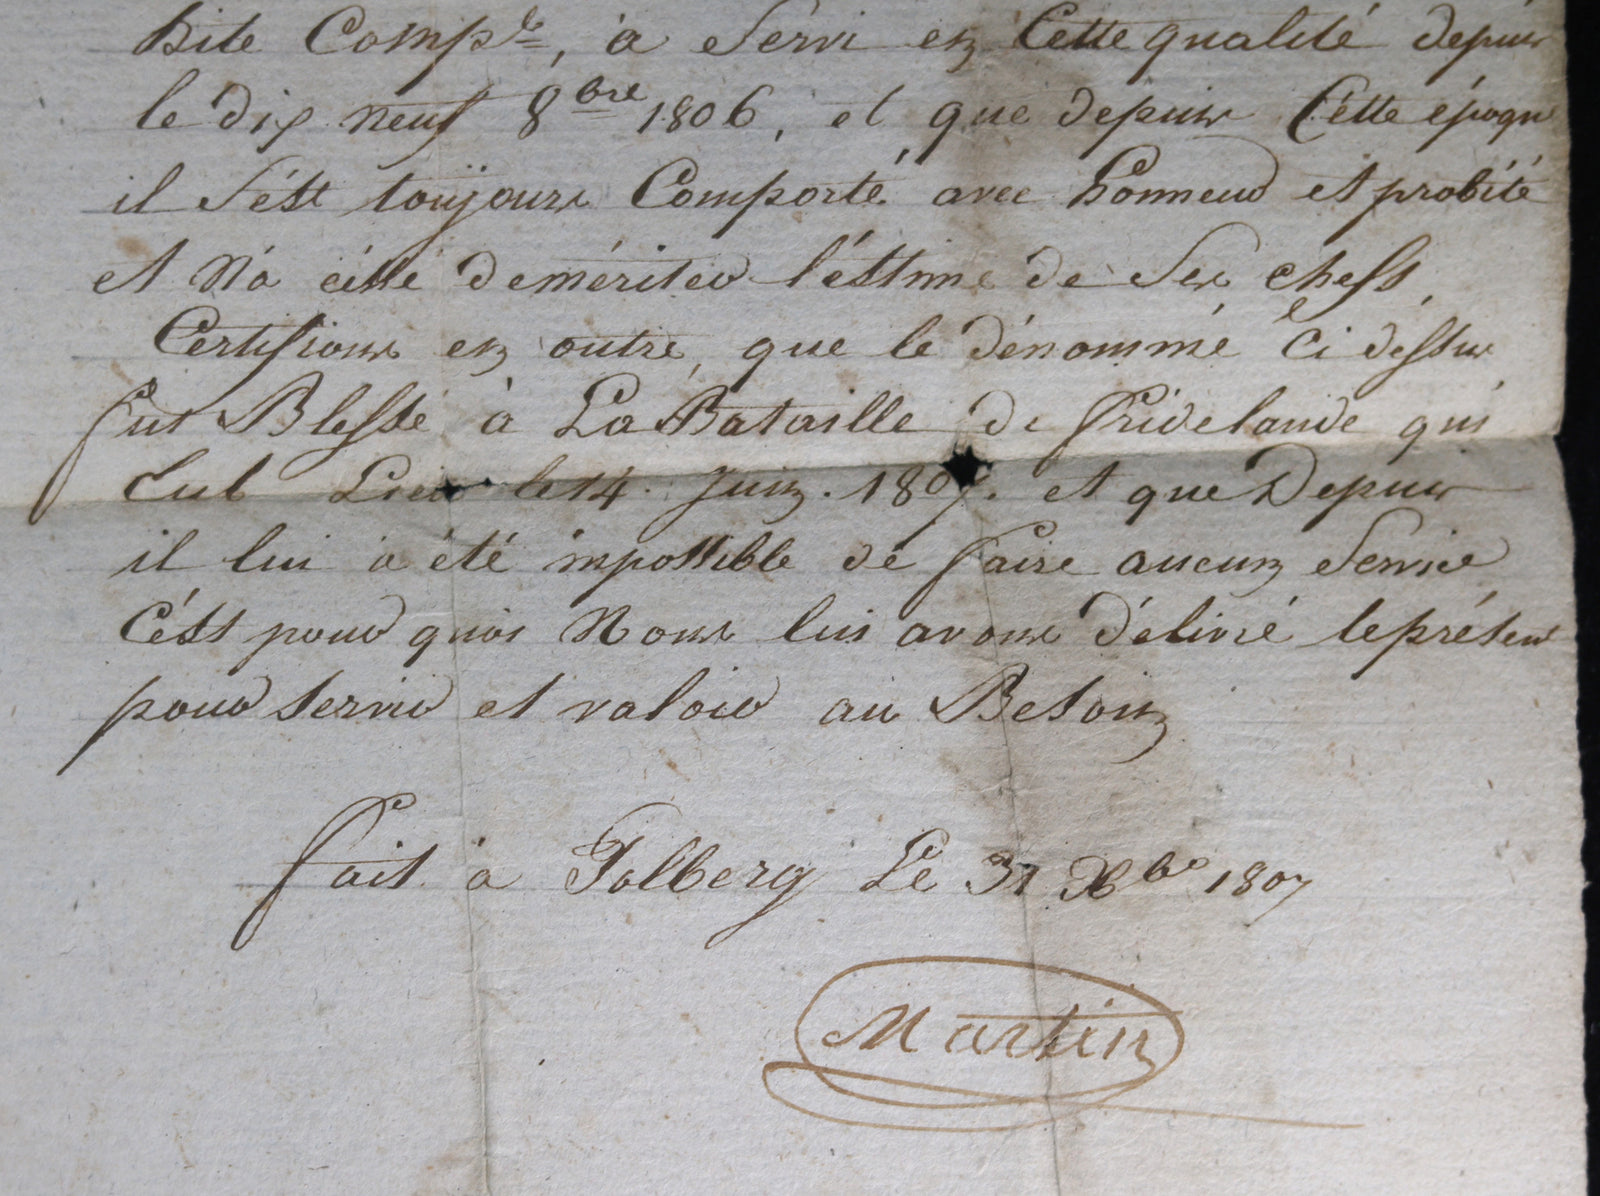 Bite Comp.le, à Servi en Cette qualité depuis
le dix neuf 8bre 1806, et que depuis Cétte époque
il S'ést toujours Comporté avec honneur et probité
et N'a céssé demériter l'éstime de Ses chefs,
Certifions en outre, que le dénommé Ci dessus
fut Blessé à La Bataille de fridelande qui
Eut Lieu le 14. Juin. 1807. et que Depuis
il lui a été impossible de faire aucun Service
C'ést pour quoi Nous lui avons délivré leprésent
pour servir et valoir au Besoin
fait à Tolberg Le 31 Xbre 1807
Martin